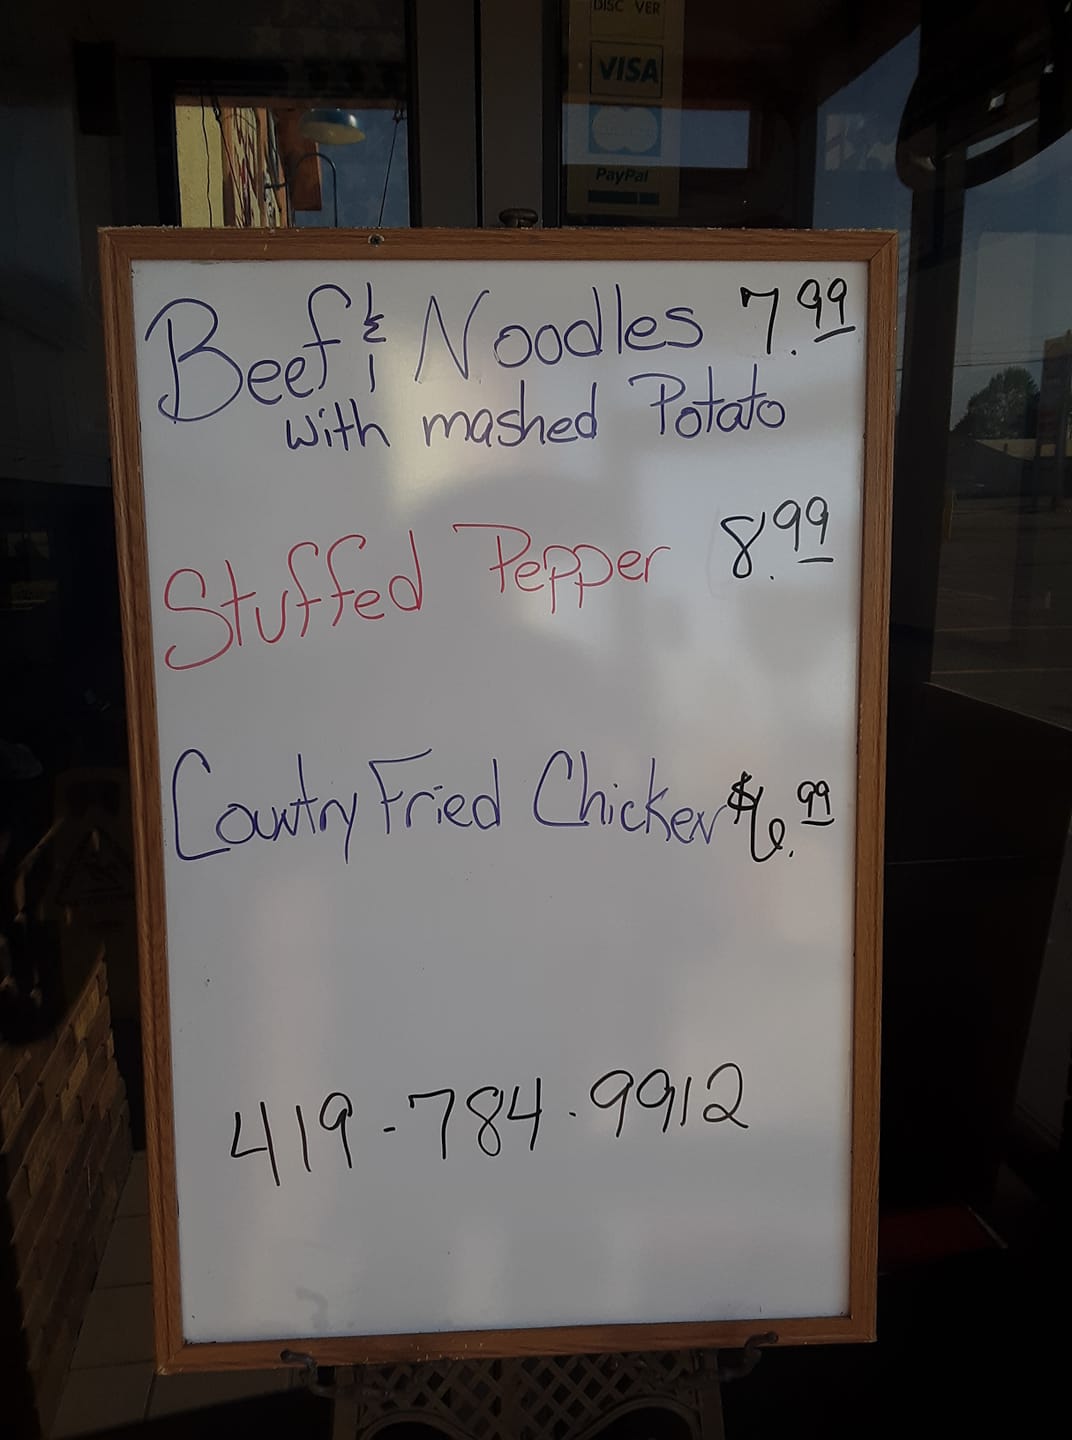 DISCOVER
VISA
PayPal
Beef & Noodles 7.99
with mashed Potato
Stuffed Pepper 8.99
Country Fried Chicken $6.99
419-784.9912